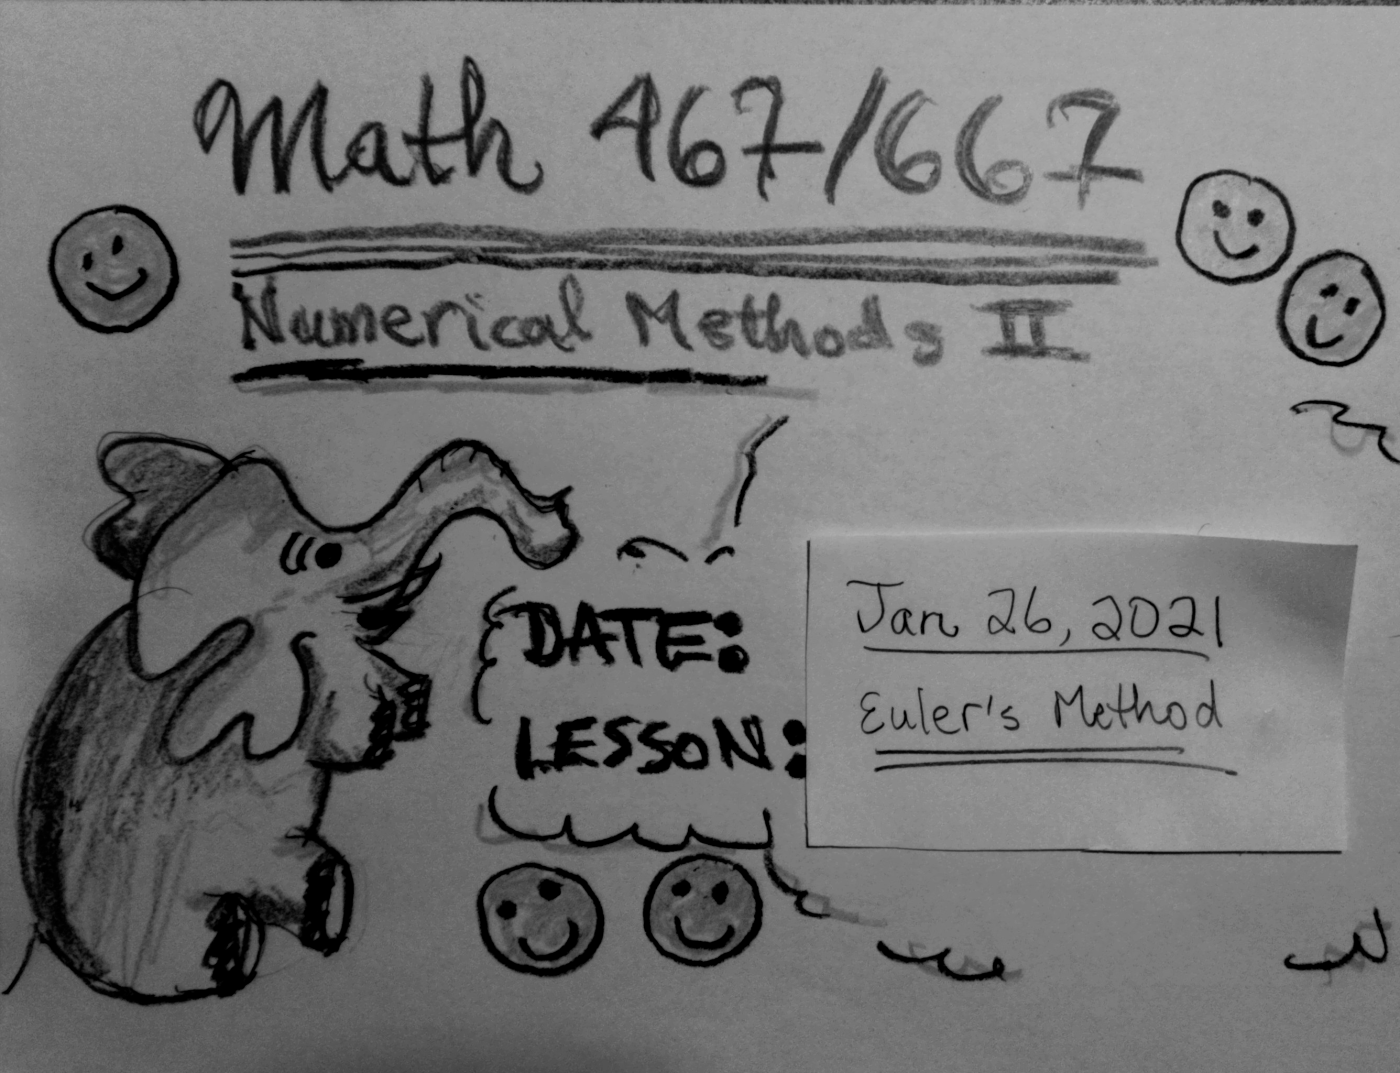 Math 467/667
Numerical Methods II
DATE:
Jan 26, 2021
LESSON:
Euler's Method